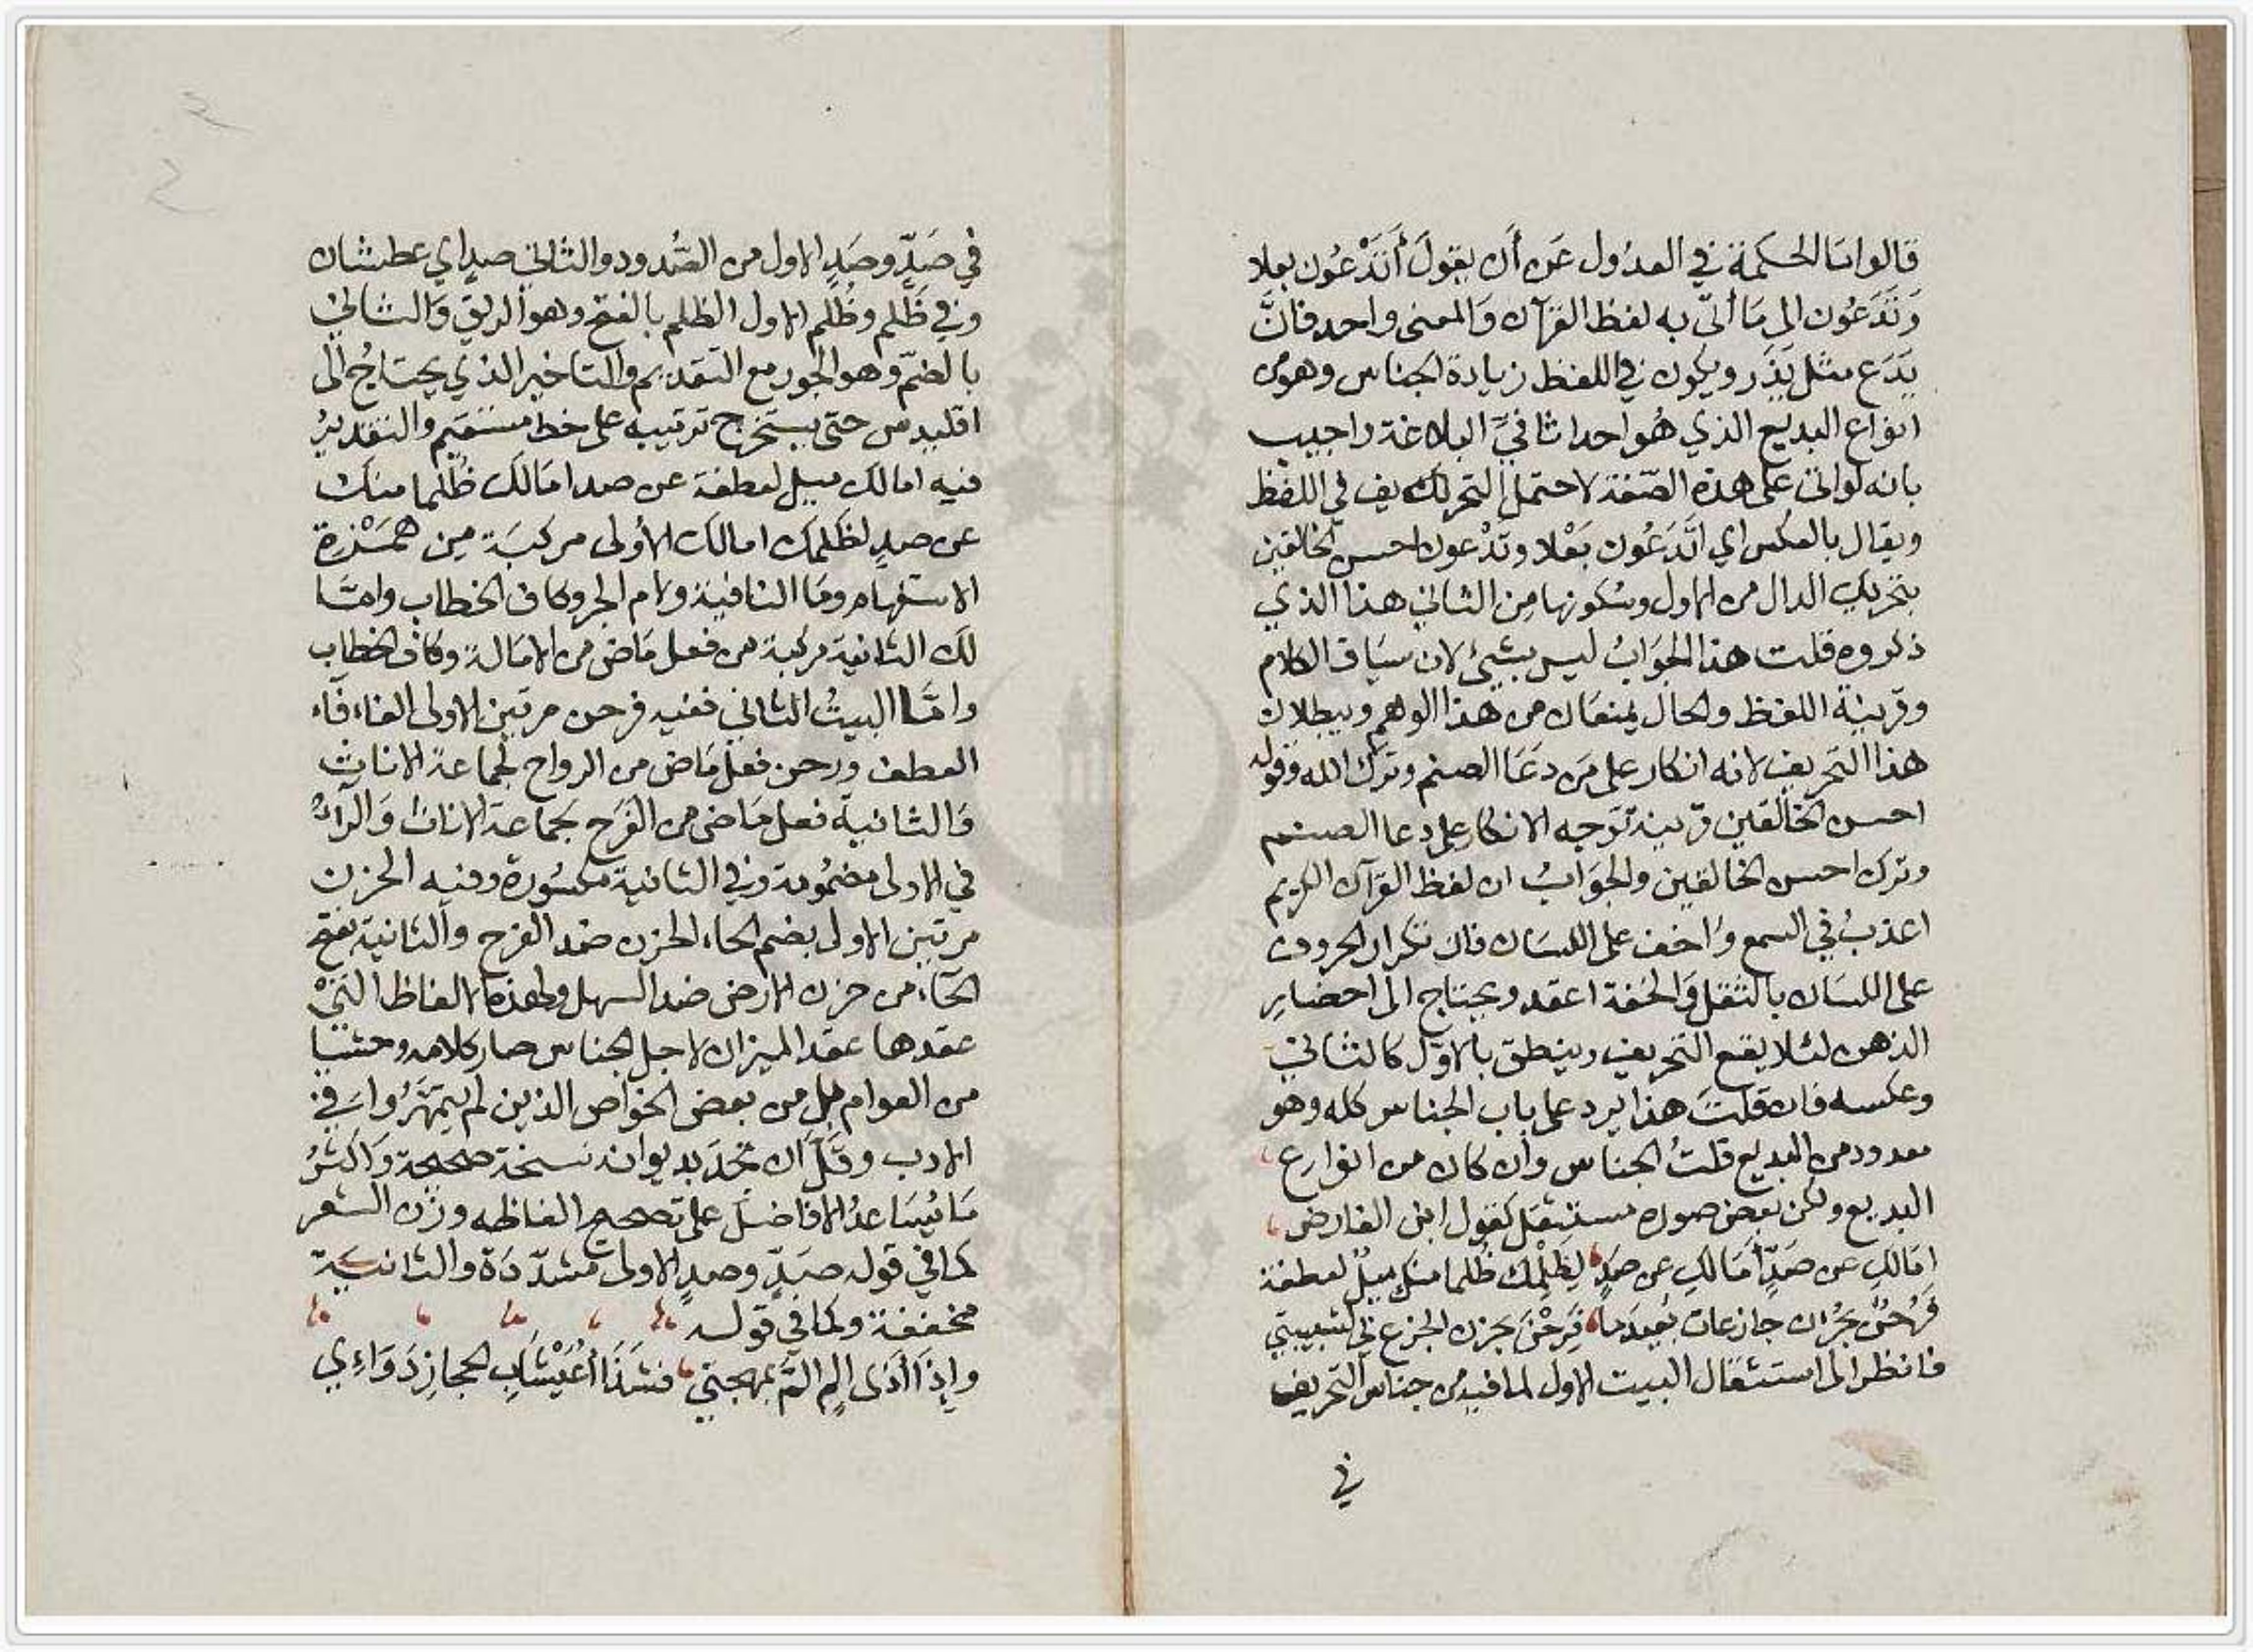 قالوا ما الحكمة في العدول عَن أَن يقولَ أَتَدْعُون بعلا
وَتَدَعُون الى مَا أتى به لفظ القرآن وَالمعنى واحد فانَّ
يَدَع مثل يَذَر ويكون في اللفظ زيادة الجناس وهو من
انواع البديع الذي هُو احد اثا في البلاغة واجيب
بانه لو اتى على هذه الصّفة لاحتمل التحريف في اللفظ
ويقال بالعكس اي اتَدَعُون بَعْلا وتَدْعون احسن الخالقين
بتحريك الدال من الاول وسُكونها مِن الثاني هذا الذي
ذكروه قلت هذا الجَوَابُ ليس بشيئ لان سيَاق الكلام
وقرينة اللفظ والحال يمنعَان من هذا الوهم ويبطلان
هذا التحريف لانه انكار على مَن دَعَا الصنم وترك الله وقوله
احسن الخالقين قرينة توجه الانكار على دعا الصنم
وترك احسن الخالقين والجوَابُ ان لفظ القرآن الكريم
اعذبُ في السمع وَاخف على اللسَان فان تكرار الحروف
على اللسَان بالثقل وَالخفة اعقد ويحتاج الى احضار
الذهن لئلا يقع التحريف وينطق بالاوّل كالثاني
وعكسه فان قلتَ هذا يرد على باب الجناس كله وهو
معدود من البديع قلتُ الجناس وان كان من انوارع
البديع ولكن بعض صوره مستثقل كقول ابن الفارض
امَالكِ عن صَدٍّ أمَالكِ عن صَدٍ لِظَلمِكِ ظُلما منكِ ميلٌ لعطفة
فَرُحْنَ بحُزن جازعات بُعَيدَما فَرِحْنَ بحزن الجزع في لشبيبتي
فانظر الى استثقال البيت الاول لما فيه من جناس التحريف
في
في صَدٍّ وصَدٍ الاول من الصُّدود والثاني صدٍ اي عطشان
وفي ظَلم وظُلم الاول الظلم بالفتح وهو الريق وَالثاني
بالضمّ وهو الجور مع التقديم والتاخير الذي يحتاجُ الى
اقليدس حتى يستخرج ترتيبه على خط مستقيم والتقديرُ
فيه امالك ميل لعطفة عن صد امَالك ظُلما منك
عن صدٍ لظلمك امالك الأولى مركبَة مِن همَزة
الاستفهام ومَا النافية ولام الجر وكاف الخطاب وامّا
لك الثانية مركبة من فعل مَاض من الامَالة وكاف الخطاب
وامَّا البيتُ الثاني ففيه فرحن مرتين الاولى الفاء فآء
العطف ورحن فعل مَاض من الرواح لجماعة الاناث
وَالثانية فعل مَاض من الفَرَح لجماعة الاناث وَالرآءُ
في الاولى مضمُومة وفي الثانية مكسُورة وفيه الحزن
مرتين الاولى بضم الحاء الحزن ضد الفرح والثانية بفتح
الحَآء من حزن الارض ضد السهل ولهذه الالفاظ التي
عقدها عقد الميزان لاجل الجناس صار كلامه وحشيا
من العوام بل من بعض الخوَاص الذين لم يتمهَّرُوا في
الادب وقَلَّ ان تجدَ بديوانه نسخة صحيحة وَاكثرُ
مَا يُسَاعدُ الافاضلَ على تصحيح الفاظه وزن الشعر
كما في قوله صَدٍّ وصدٍ الاولى مشدّدَة والثانيَة
مخففة وكما في قوله
واِذَا أذَى المٍ المَّ بمهجتي فشَذَا أُعَيْشَابِ الحجازِ دَوَاءِي